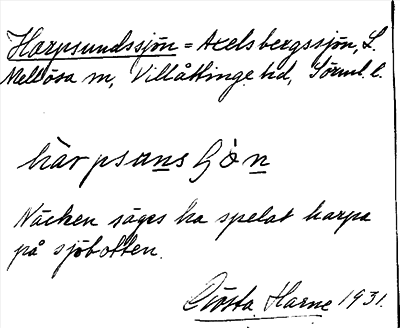 Harpsundssjön = Axelsbergssjön, L.
Mellösa sn, Villåttinge hd, Sörml. l.
harpsunsʃön
Näcken säges ha spelat harpa
på sjöbotten.
Gösta Harne 1931.